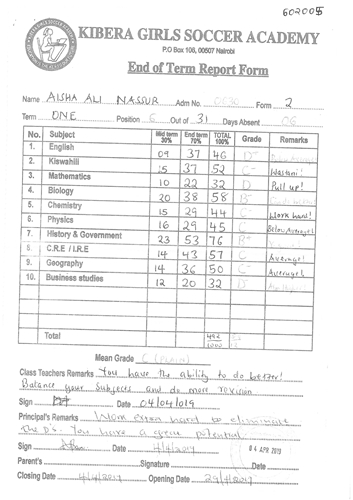 602005
KIBERA GIRLS SOCCER ACADEMY
P.O Box 106, 00507 Nairobi
End of Term Report Form
Name AISHA ALI NASSUR Adm No. Form 2
Term ONE Position 6 Out of 31 Days Absent 06
No. Subject Mid term 30% End term 70% TOTAL 100% Grade Remarks
1. English 09 37 46
2. Kiswahili 15 37 52 C- Wastani!
3. Mathematics 10 22 32 D Pull up!
4. Biology 20 38 58
5. Chemistry 15 29 44 Work hard!
6. Physics 16 29 45 C- Below Average!
7. History & Government 23 53 76
8. C.R.E / I.R.E 14 43 57 C Average!
9. Geography 14 36 50 C- Average!
10. Business studies 12 20 32
Total 492 1000
Mean Grade C (PLAIN)
Class Teachers Remarks You have the ability to do better!
Balance your subjects and do more revision
Sign Date 04/04/019
Principal's Remarks Work extra hard to eliminate
The D's. You have a great potential.
Sign Date 4/4/2019 04 APR 2019
Parent's Signature Date
Closing Date 4/4/2019 Opening Date 29/4/2019